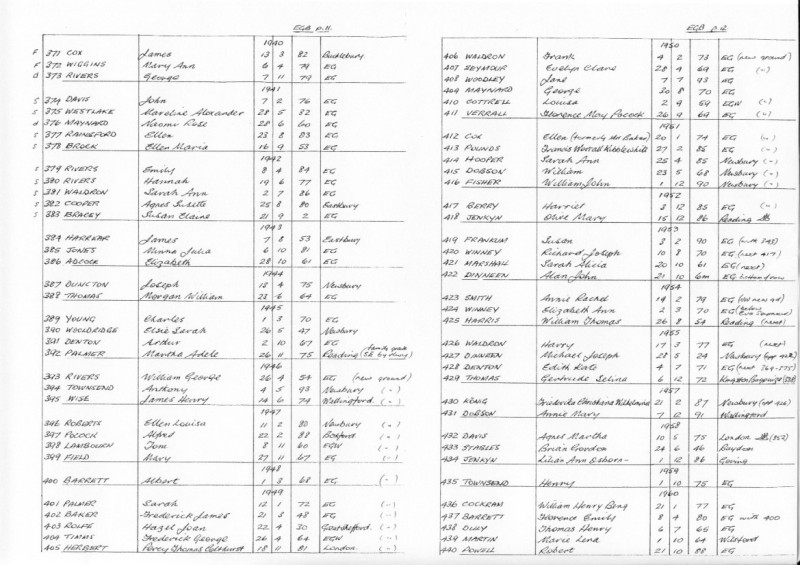 EGB p.11.
1940
F 371 COX James 13 3 82 Bucklebury
F 372 WIGGINS Mary Ann 6 4 79 EG
d 373 RIVERS George 7 11 79 EG
1941
S 374 DAVIS John 7 2 76 EG
S 375 WESTLAKE Madeline Alexander 28 5 32 EG
d 376 MAYNARD Naomi Rose 28 6 60 EG
S 377 RAINSFORD Ellen 23 8 83 EG
S 378 BROCK Ellen Maria 16 9 53 EG
1942
S 379 RIVERS Emily 8 4 84 EG
S 380 RIVERS Hannah 19 6 77 EG
S 381 WALDRON Sarah Ann 2 7 86 EG
S 382 COOPER Agnes Susette 25 8 80 Eastbury
S 383 BRACEY Susan Elaine 21 9 2 EG
1943
384 HARREAR James 7 8 53 Eastbury
385 JONES Minna Julia 6 10 81 EG
386 ADCOCK Elizabeth 28 10 61 EG
1944
387 DUNCTON Joseph 12 4 75 Newbury
388 THOMAS Morgan William 22 6 64 EG
1945
389 YOUNG Charles 1 3 70 EG
390 WOOLDRIDGE Elsie Sarah 26 5 47 Newbury
391 DENTON Arthur 2 10 67 EG
392 PALMER Martha Adele 26 11 75 Reading
1946
393 RIVERS William George 26 4 54 EG (new ground)
394 TOWNSEND Anthony 4 5 93 Newbury (")
395 WISE James Henry 14 6 74 Wallingford (")
1947
396 ROBERTS Ellen Louisa 11 2 80 Newbury (")
397 POCOCK Alfred 22 2 88 Boxford (")
398 LAMBOURN Tom 8 11 60 EGW (")
399 FIELD Mary 27 11 67 EG (")
1948
400 BARRETT Albert 1 3 68 EG (")
1949
401 PALMER Sarah 12 1 72 EG (")
402 BAKER Frederick James 21 3 48 EG (")
403 ROLFE Hazel Joan 22 4 30 (")
404 TIMMS Frederick George 26 4 64 EGW (")
405 HERBERT Percy Thomas 18 11 81 London (")
EGB p.12
1950
406 WALDRON Frank 4 2 73 EG (new ground)
407 SEYMOUR Evelyn Clare 28 4 69 EG (")
408 WOODLEY Jane 7 7 93 EG
409 MAYNARD George 30 8 70 EG
410 COTTRELL Louisa 2 9 59 EGW (")
411 VERRALL Florence May Pocock 26 9 69 EG (")
1951
412 COX Ellen (formerly Mrs Baker) 20 1 74 EG (")
413 POUNDS Francis Worrall 27 2 85 EG (")
414 HOOPER Sarah Ann 25 4 85 Newbury (")
415 DOBSON William 23 5 68 Newbury (")
416 FISHER William John 1 12 90 Newbury (")
1952
417 BERRY Harriet 3 12 85 EG (")
418 JENKYN Olive Mary 15 12 86 Reading
1953
419 FRANKUM Susan 3 2 90 EG (with 243)
420 WINNEY Richard Joseph 10 8 70 EG (next 417)
421 MARSHALL Sarah Alicia 20 10 61 EG (next)
422 DINNEEN Alan John 21 10 6m EG
1954
423 SMITH Annie Rachel 19 2 79 EG
424 WINNEY Elizabeth Ann 2 3 70 EG
425 HARRIS William Thomas 26 8 54 Reading (next)
1955
426 WALDRON Harry 17 3 77 EG (next)
427 DINNEEN Michael Joseph 28 5 24 Newbury
428 DENTON Edith Kate 4 7 71 EG
429 THOMAS Gertrude Selina 6 12 72 Kingston
1957
430 KRUG Frederika Christiana Wilhelmina 21 2 87 Newbury
431 DOBSON Annie Mary 7 12 91 Wallingford
1958
432 DAVIS Agnes Martha 10 5 75 London
433 STABLES Brian Gordon 24 6 46 Roydon
434 JENKYN Lilian Ann Osborn- 1 12 86 Goring
1959
435 TOWNSEND Henry 1 10 75 EG
1960
436 COCKRAM William Henry 21 1 77 EG
437 BARRETT Florence Emily 8 4 80 EG with 400
438 DULY Thomas Henry 6 7 65 EG
439 MARTIN Marie Lena 1 10 64 Wilsford
440 POWELL Robert 21 10 88 EG